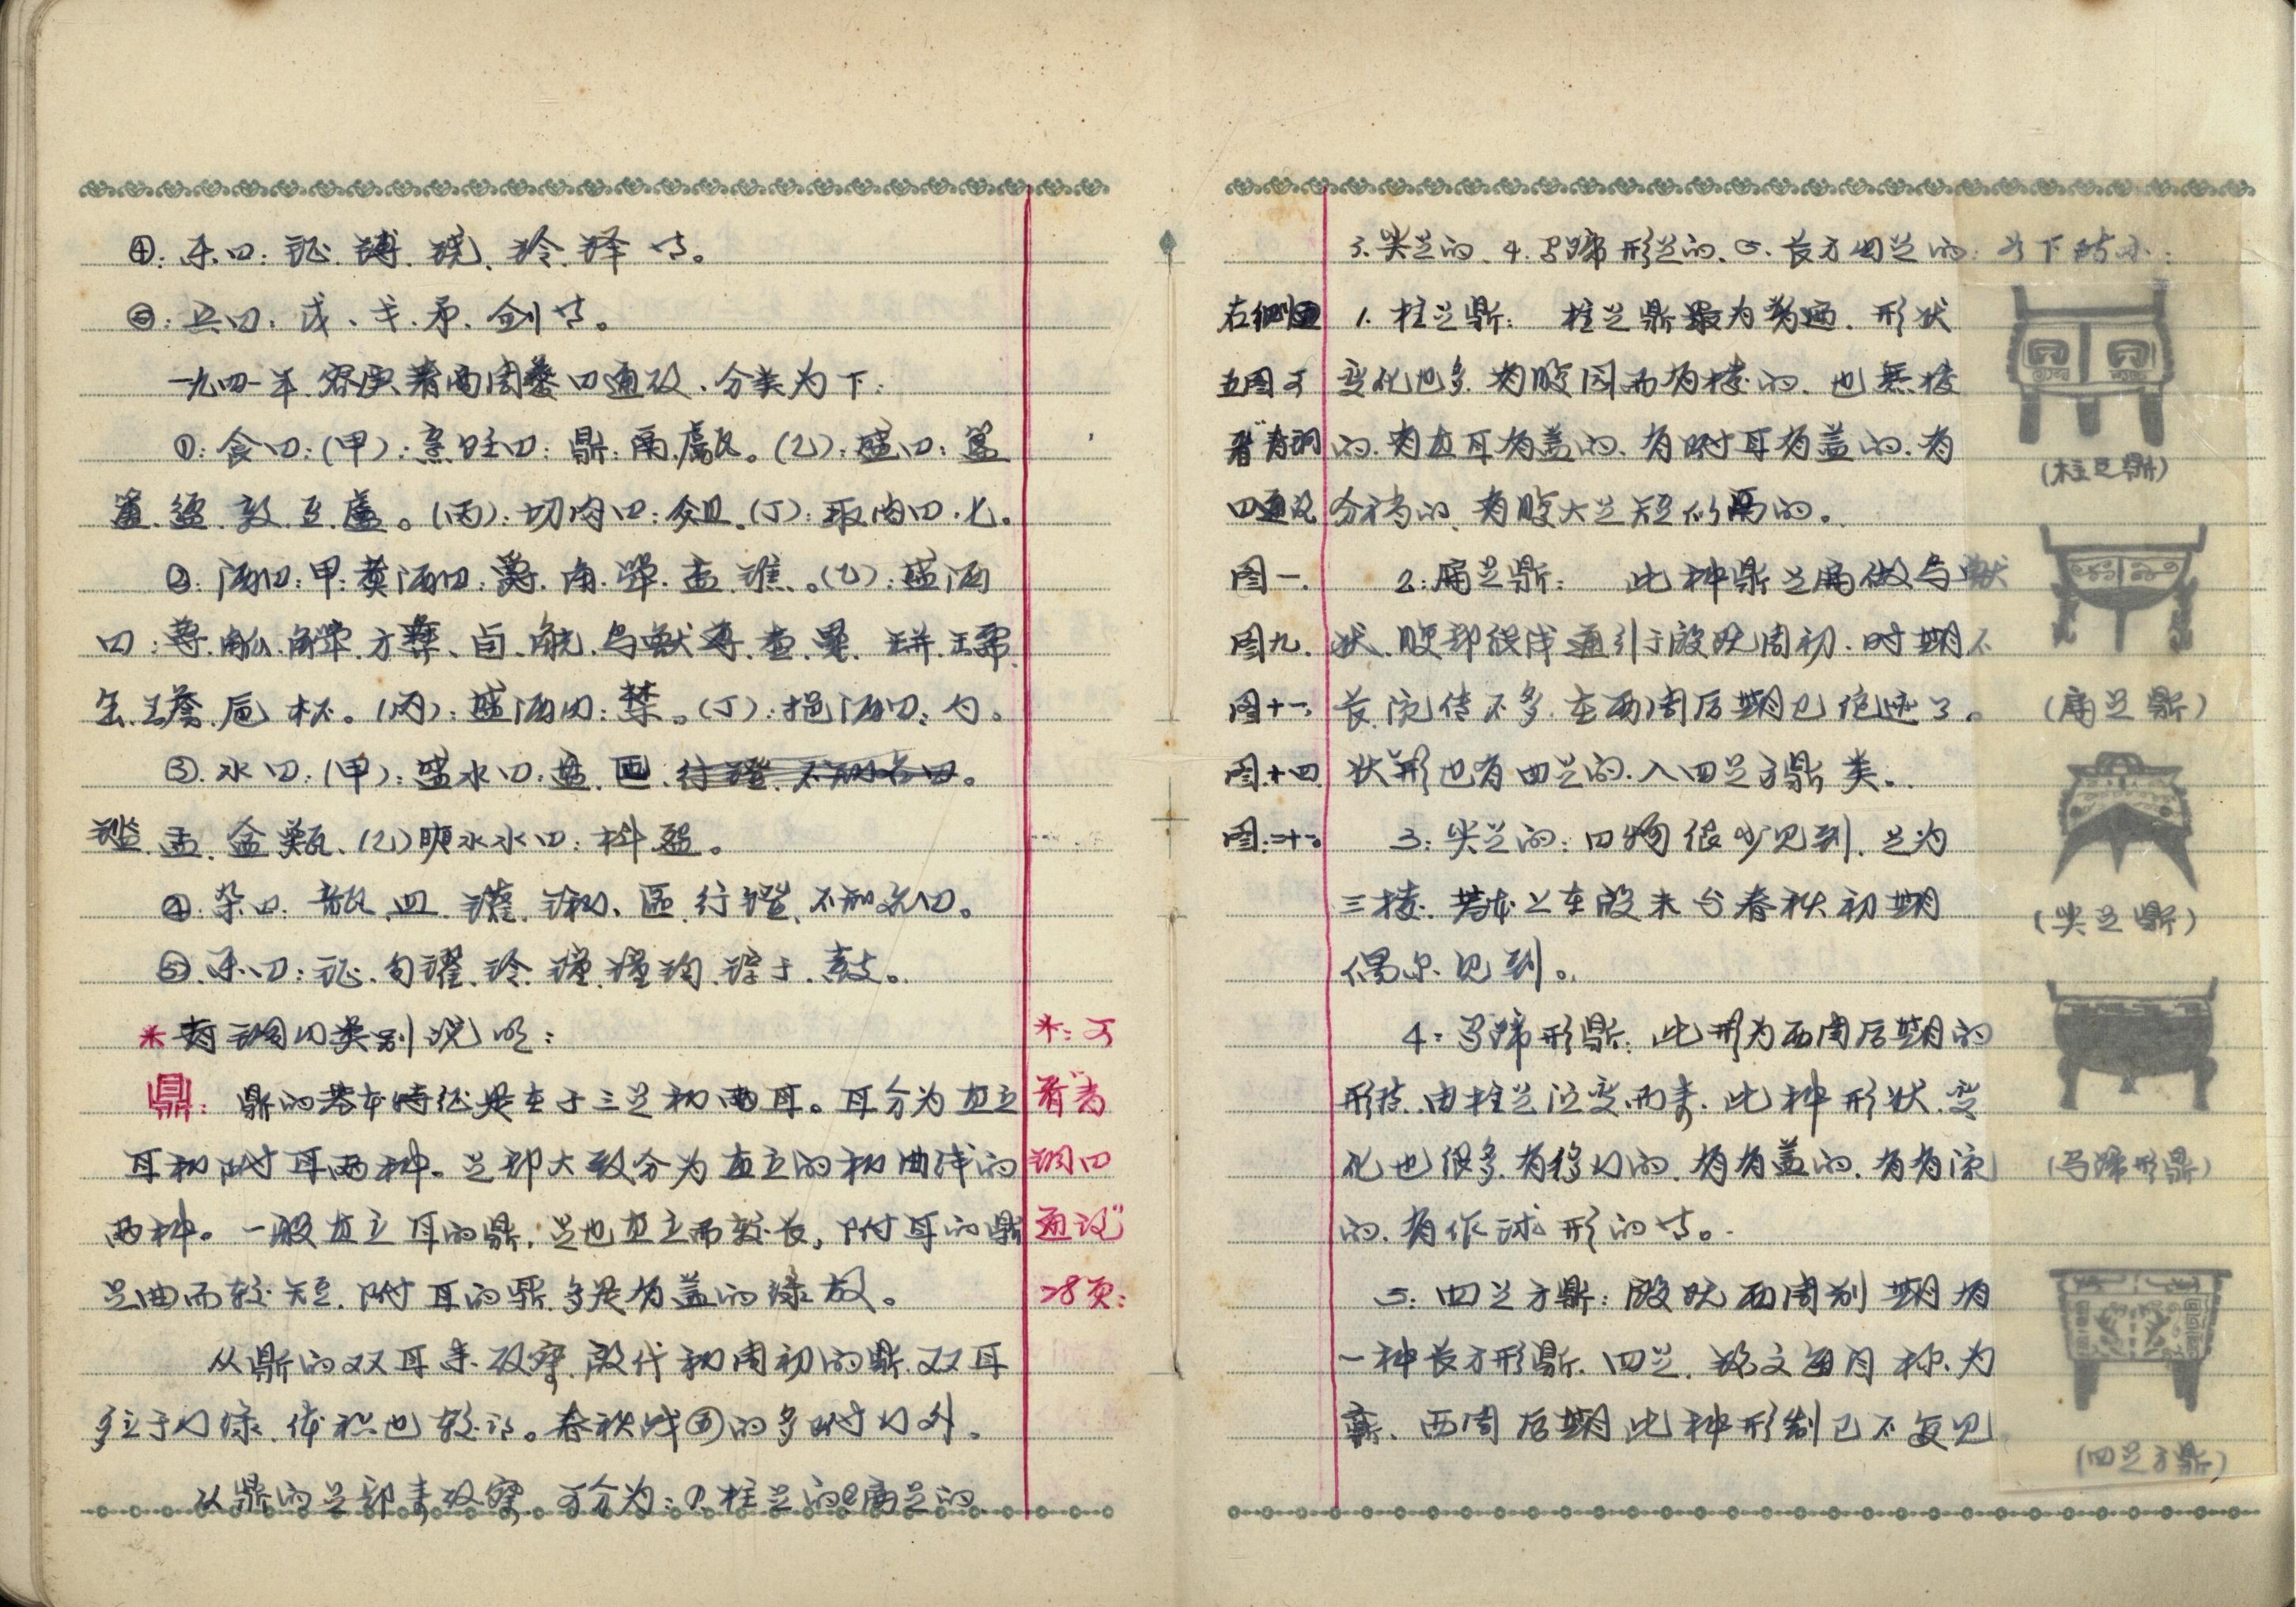 ④: 乐口: 钲. 镈. 铙. 铃. 铎 等。
⑤: 兵口: 戊、戈. 矛. 剑 等。
一九四一年. 容庚著商周彝口通考. 分类为下:
①: 食口: (甲): 烹饪口: 鼎. 鬲. 甗。(乙): 盛口: 簋
簠. 盨. 敦. 豆. 卢。(丙): 切肉口: 俎. (丁): 取肉口. 匕。
②: 酒口: 甲: 煮酒口: 爵. 角. 斝. 盉. 鐎。(乙): 盛酒
口: 尊. 觚. 觯. 方彝、卣. 觥. 鸟兽尊. 壶. 罍.
缶. 卮. 杯。(丙): 盛酒口: 禁。(丁): 挹酒口: 勺。
③. 水口: (甲): 盛水口: 盘. 匜. 行镫. 不知名口。
鉴. 盂. 盆. 甀. (乙) 水口: 枓 。
④. 杂口. 瓿. 皿. 区. 行镫. 不知名口。
⑤. 乐口: 钲. 句鑃. 铃. 钟. 钟钩. 錞于. 鼓。
* 青铜口类别说明:
鼎: 鼎的基本特征是在于三足和两耳。耳分为直立
耳和附耳两种。足部大致分为直立的和曲线的
两种。一般直立耳的鼎. 足也直立而较长, 附耳的鼎
足曲而较短. 附耳的鼎. 多是有盖的缘故。
从鼎的双耳来考察. 殷代和周初的鼎. 双耳
多立于口缘. 体积也较 。春秋战国的多附口外。
从鼎的足部来考察. 可分为: ①. 柱足的 ②扁足的.
*: 可
看"青
铜口
通论"
28页:
3. 尖足的. 4. 马蹄形足的. 5. 长方四足的: 如下所示:
1. 柱足鼎: 柱足鼎最为普遍. 形状
变化也多. 有腹圆而有棱的. 也无棱
的. 有直耳有盖的. 有附耳有盖的. 有
分裆的. 有腹大足短似鬲的。
2: 扁足鼎: 此种鼎足扁做鸟兽
状. 腹部很浅. 通行于殷晚周初. 时期不
长. 流传不多. 在西周后期已绝迹了。
状形也有四足的. 入四足方鼎类。
3: 尖足的: 口物很少见到. 足为
三棱. 基本上在殷末与春秋初期
偶尔见到。
4: 马蹄形鼎: 此形为西周后期的
形制. 由柱足演变而来. 此种形状. 变
化也很多. 有移口的. 有有盖的. 有有流
的. 有作球形的等。
5: 四足方鼎: 殷晚西周初期有
一种长方形鼎. 四足. 铭文每自称为
鼒. 西周后期此种形制已不复见
右侧
五图可
看"青铜
口通论
图一.
图九.
图十一.
图十四
图二十一.
(柱足鼎)
(扁足鼎)
(尖足鼎)
(马蹄形鼎)
(四足方鼎)